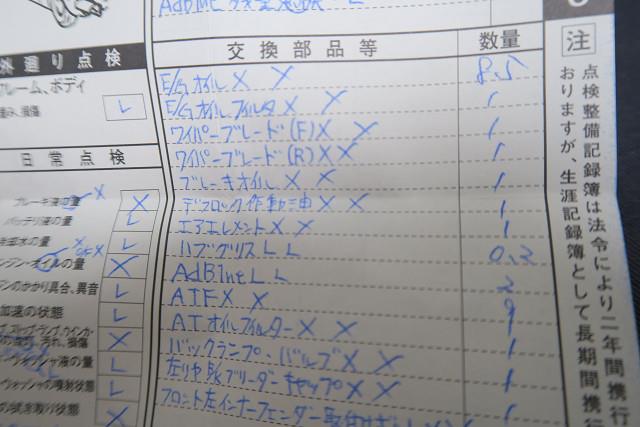 AdBlue
交換部品等 数量
E/Gオイル X X 8.5
E/Gオイルフィルタ X X 1
ワイパーブレード(F) X X 1
ワイパーブレード(R) X X 1
ブレーキオイル X X 1
デフロック作動油 X X 1
エアエレメント X X 1
ハブグリス L L 0.2
AdBlue L L 2
ATF X X 9
ATオイルフィルター X X 1
バックランプ、バルブ X X 1
左リヤBkブリーダーキャップ X X 1
フロント左インナーフェンダー 1
外廻り点検
フレーム、ボディ
損傷 レ
日常点検
ブレーキ液の量 X
バッテリ液の量 レ
冷却水の量 レ
エンジン・オイルの量 X
ジンのかかり具合、異音 レ
加速の状態 レ
汚れ、損傷 X
ウォッシャ液の量 レ
ウォッシャの噴射状態 レ
の拭き取り状態 X
注
点検整備記録簿は法令により二年間携行
おりますが、生涯記録簿として長期間携